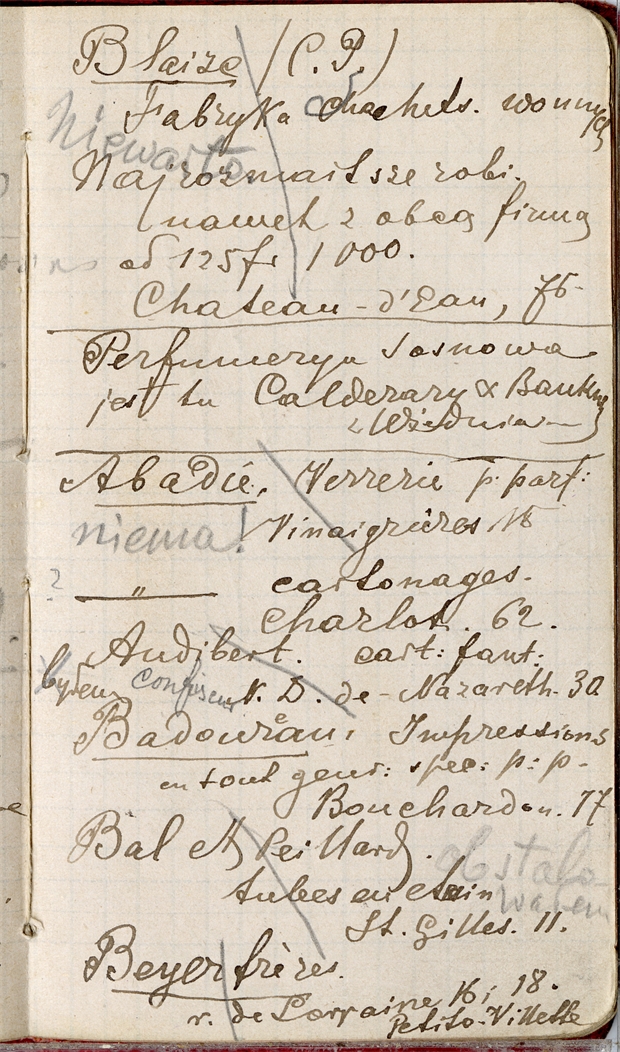 Blaize (C. P.)
Fabryka chachets. wonnych
Niewarto
Najrozmaitsze robi.
nawet z obcą firmą
od 125 fr 1000.
Chateau-d'Eau, 75
Perfumerya sosnowa
jest tu Calderary & Bankm
z Wiednia
Abadie. Verrerie p. parf:
niema! Vinaigrières 15
? — " — cartonages.
Charlot. 62.
Audibert. cart: fant:
byłem Confiseur N. D. de-Nazareth. 30
Badoureau. Impressions
en tout genr: spec: p: p.
Bouchardon. 17
Bal et Peillard.
obstalowałem
tubes en etain
St. Gilles. 11.
Beyer frères.
r. de Lorraine 16 i 18.
Petite-Villette